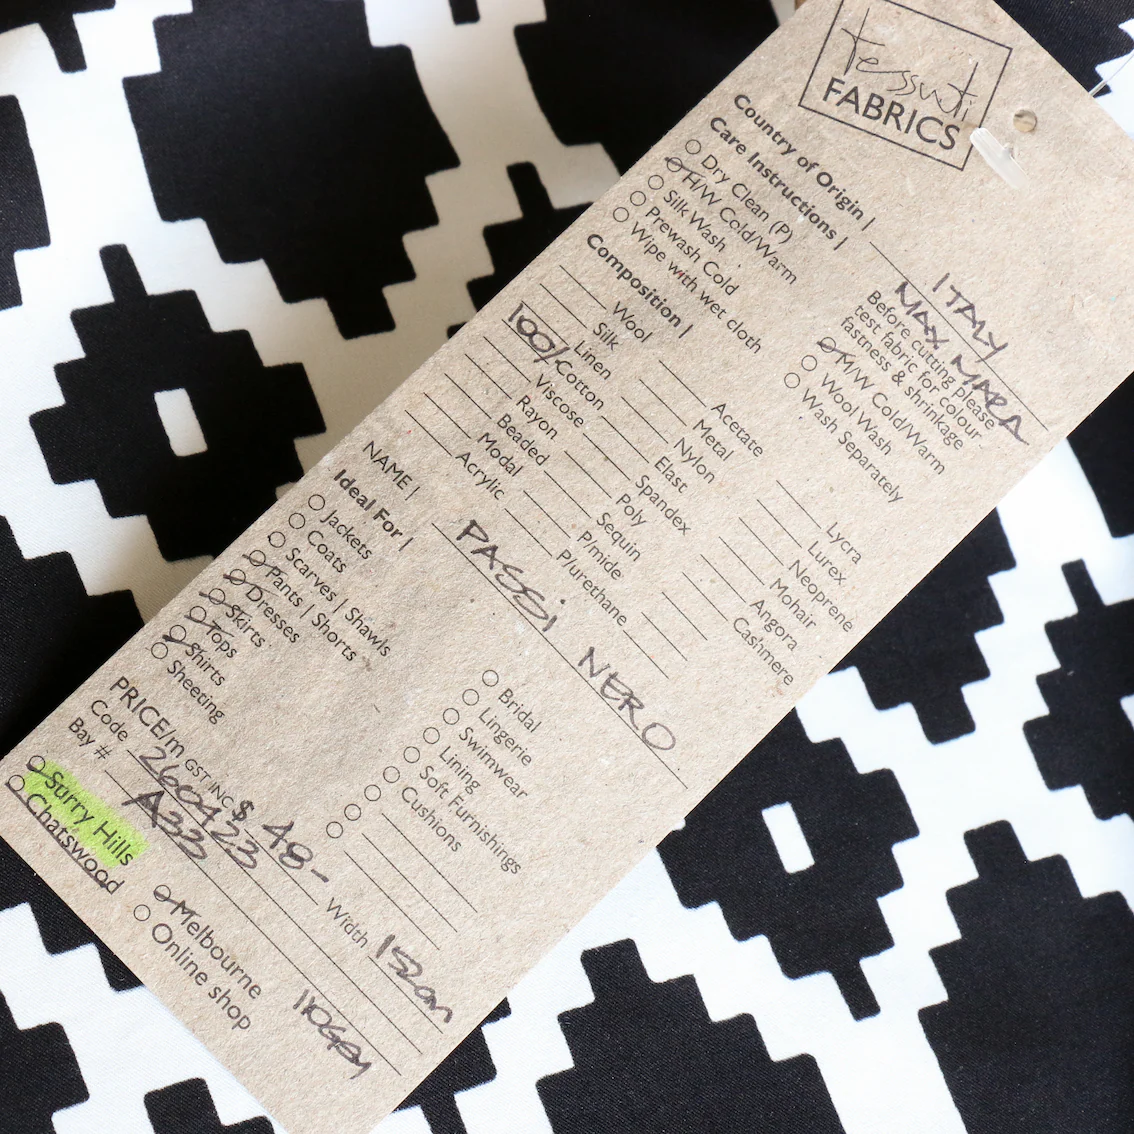 tessuti
FABRICS
Country of Origin | ITALY
Care Instructions | MAX MARA
Dry Clean (P)
H/W Cold/Warm
Silk Wash
Prewash Cold
Wipe with wet cloth
Before cutting please
test fabric for colour
fastness & shrinkage
M/W Cold/Warm
Wool Wash
Wash Separately
Composition |
Wool
Silk
Linen
100% Cotton
Viscose
Rayon
Beaded
Modal
Acrylic
Acetate
Metal
Nylon
Elast
Spandex
Poly
Sequin
P/mide
P/urethane
Lycra
Lurex
Neoprene
Mohair
Angora
Cashmere
NAME | PASSI NERO
Ideal For |
Jackets
Coats
Scarves | Shawls
Pants | Shorts
Dresses
Skirts
Tops
Shirts
Sheeting
Bridal
Lingerie
Swimwear
Lining
Soft Furnishings
Cushions
PRICE/m GST INC $ 48- Width 152cm
Code 260423
Bay # A33
Surry Hills
Chatswood
Melbourne
Online shop